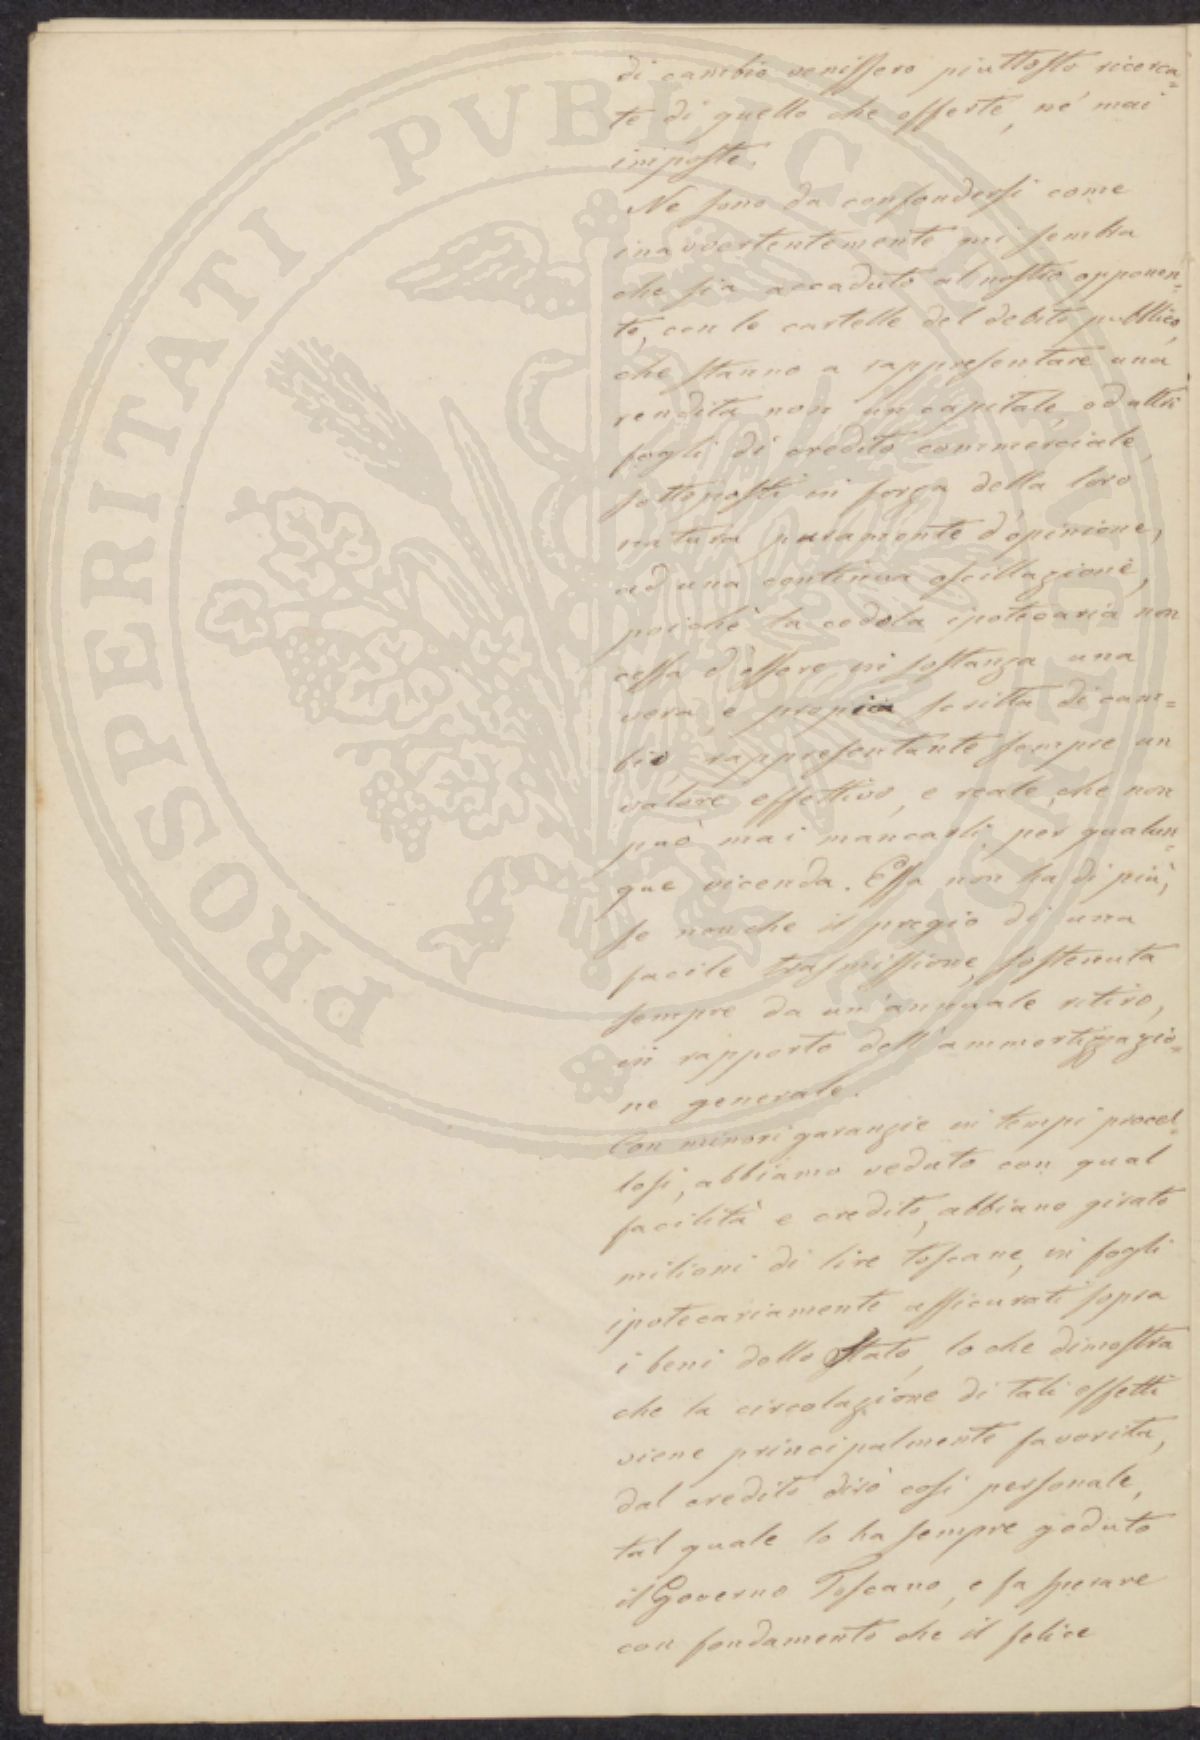 di cambio venissero piuttosto ricerca=
te di quello che offerte, né mai
imposte.
Ne sono da confondersi come
inavvertentemente mi sembra
che sia accaduto al nostro opponen=
te, con le cartelle del debito pubblico,
che stanno a rappresentare una
rendita non un capitale, od altri
fogli di credito commerciale,
sottoposti in forza della loro
natura puramente d'opinione,
ad una continua oscillazione,
poiché la cedola ipotecaria non
cessa d'essere in sostanza una
vera, e propria scritta di cam=
bio, rappresentante sempre un
valore effettivo, e reale, che non
può mai mancarli per qualun=
que vicenda. Essa non ha di più,
se non che il pregio di una
facile trasmissione, sostenuta
sempre da un'annuale ritiro,
in rapporto dell'ammortizzazio=
ne generale.
Con minori garanzie in tempi procel=
losi, abbiamo veduto con qual
facilità e credito, abbiano girato
milioni di lire toscane, in fogli
ipotecariamente assicurati sopra
i beni dello Stato, lo che dimostra
che la circolazione di tali effetti
viene principalmente favorita,
dal credito dirò così personale,
tal quale lo ha sempre goduto
il Governo Toscano, e fa sperare
con fondamento che il felice
PROSPERITATI PVBLICAE AVGENDAE